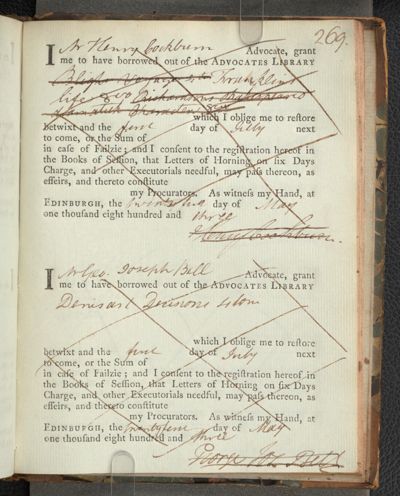 269.
I Mr Henry Cockburn Advocate, grant
me to have borrowed out of the ADVOCATES LIBRARY
Franklin's
life
which I oblige me to reſtore
betwixt and the first day of July next
to come, or the Sum of
in caſe of Failzie; and I conſent to the regiſtration hereof in
the Books of Seſſion, that Letters of Horning on ſix Days
Charge, and other Executorials needful, may paſs thereon, as
effeirs, and thereto conſtitute
my Procurators. As witneſs my Hand, at
EDINBURGH, the day of May
one thouſand eight hundred and three
Henry Cockburn.
I Mr Geo. Joseph Bell Advocate, grant
me to have borrowed out of the ADVOCATES LIBRARY
Denisart Decisions
which I oblige me to reſtore
betwixt and the first day of July next
to come, or the Sum of
in caſe of Failzie; and I conſent to the regiſtration hereof in
the Books of Seſſion, that Letters of Horning on ſix Days
Charge, and other Executorials needful, may paſs thereon, as
effeirs, and thereto conſtitute
my Procurators. As witneſs my Hand, at
EDINBURGH, the day of May
one thouſand eight hundred and three
George Jos. Bell